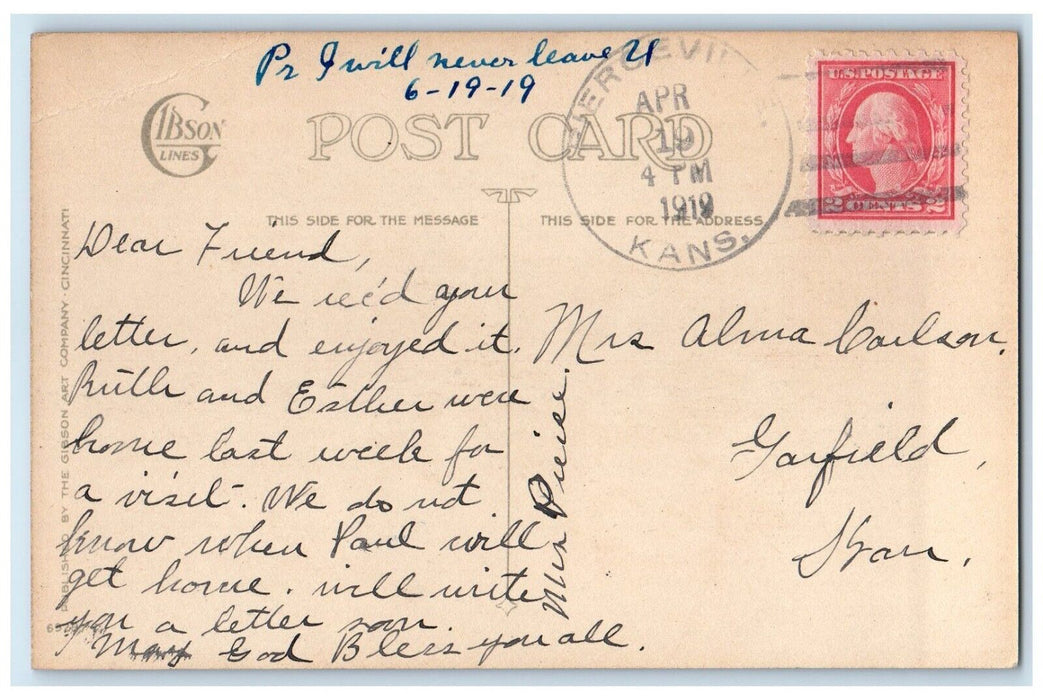 Pr I will never leave U
6-19-19
GIBSON
LINES
POST CARD
APR
19
4 PM
1919
KANS.
U.S. POSTAGE
2 CENTS 2
THIS SIDE FOR THE MESSAGE
THIS SIDE FOR THE ADDRESS
Dear Friend,
We rec'd your
letter, and enjoyed it.
Ruth and Esther were
home last week for
a visit. We do not
know when Paul will
get home. will write
you a letter soon.
May God Bless you all.
Mrs Pierce.
Mrs Alma Carlson.
Garfield,
Kan.
PUBLISHED BY THE GIBSON ART COMPANY · CINCINNATI